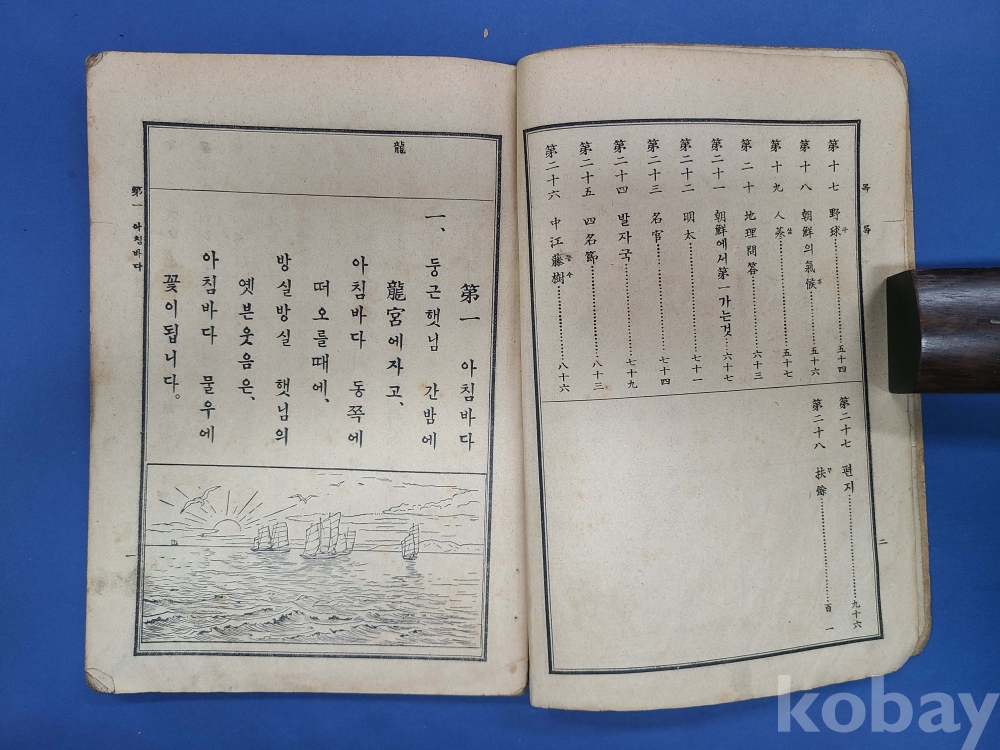 目錄
第十七 野球구…………五十四
第十八 朝鮮의氣候후…………五十六
第十九 人蔘삼…………五十七
第二十 地理問答…………六十三
第二十一 朝鮮에서第一가는것…六十七
第二十二 明太…………七十一
第二十三 名官…………七十四
第二十四 발자국…………七十九
第二十五 四名節…………八十三
第二十六 中江藤樹등수…………八十六
第二十七 편지…………九十六
第二十八 扶餘부…………百一
二
龍
第一 아침바다
第一 아침바다
一、둥근햇님 간밤에
龍宮에자고、
아침바다 동쪽에
떠오를때에、
방실방실 햇님의
옛븐웃음은、
아침바다 물우에
꽃이됩니다。
一
kobay